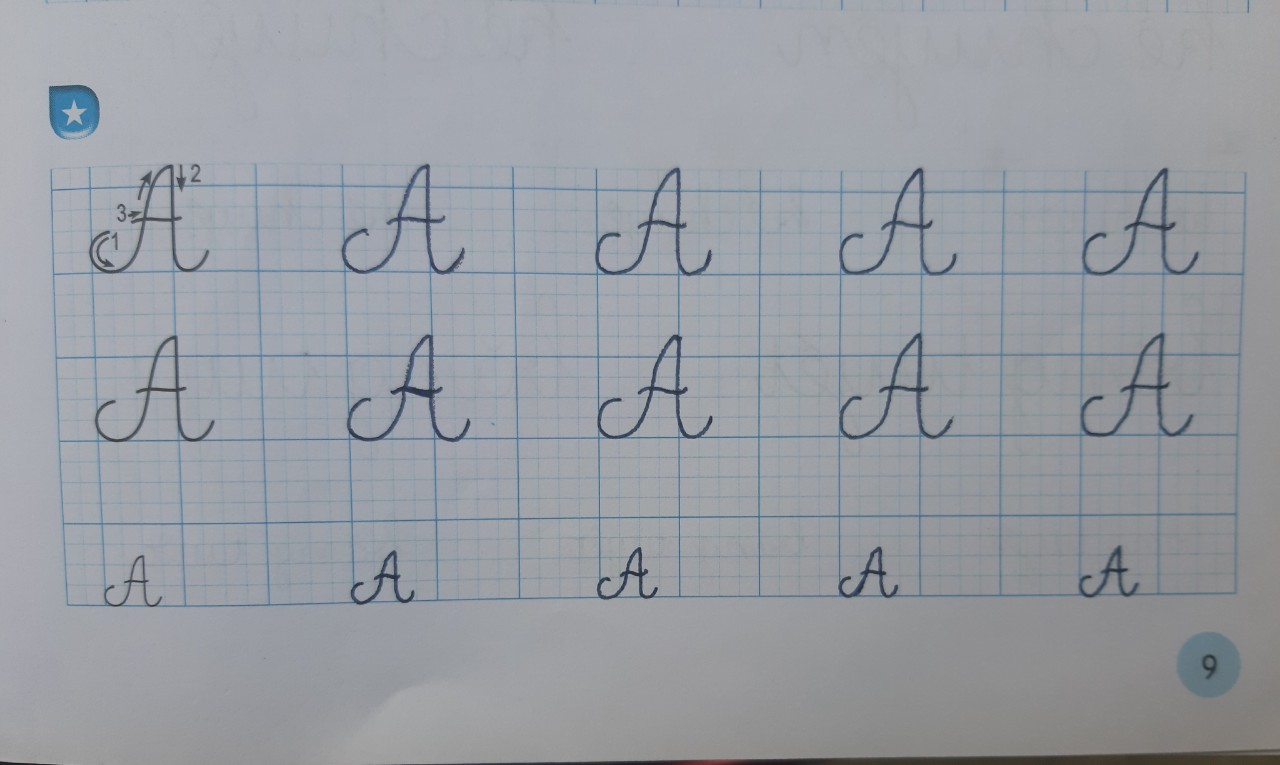 1 2 3 A A A A A
A A A A A
A A A A A
9